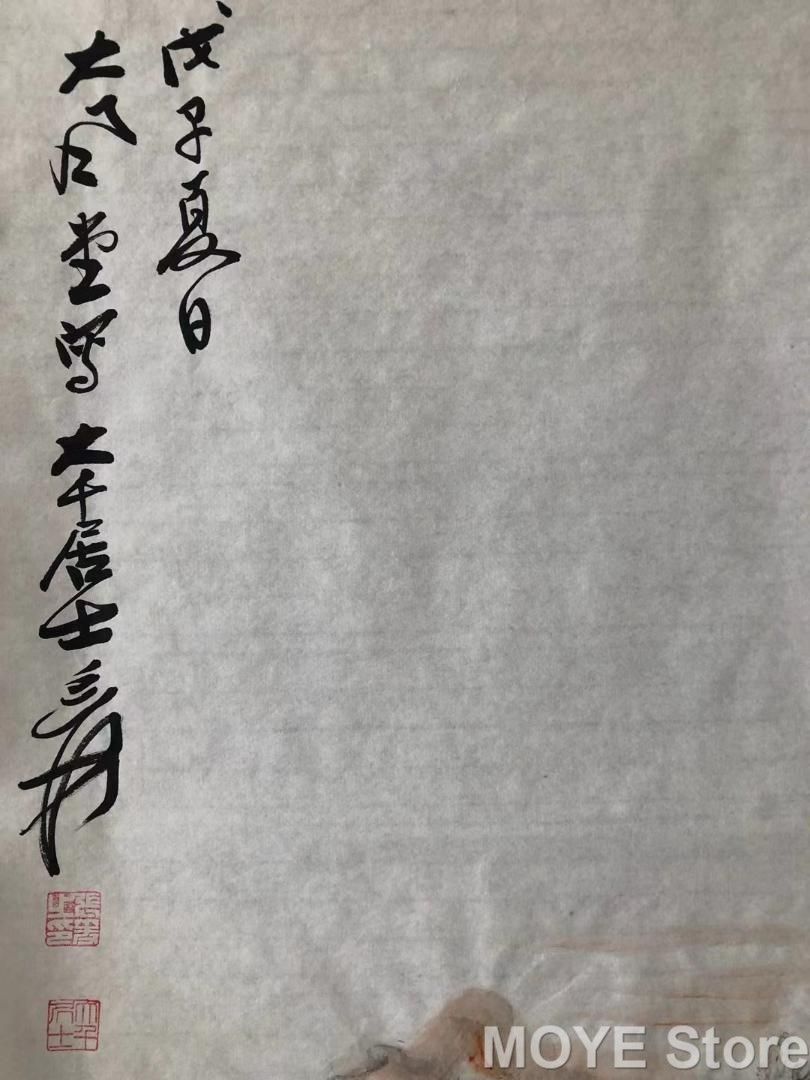 戊子夏日
大风堂写大千居士爰
大千居士
MOYE Store